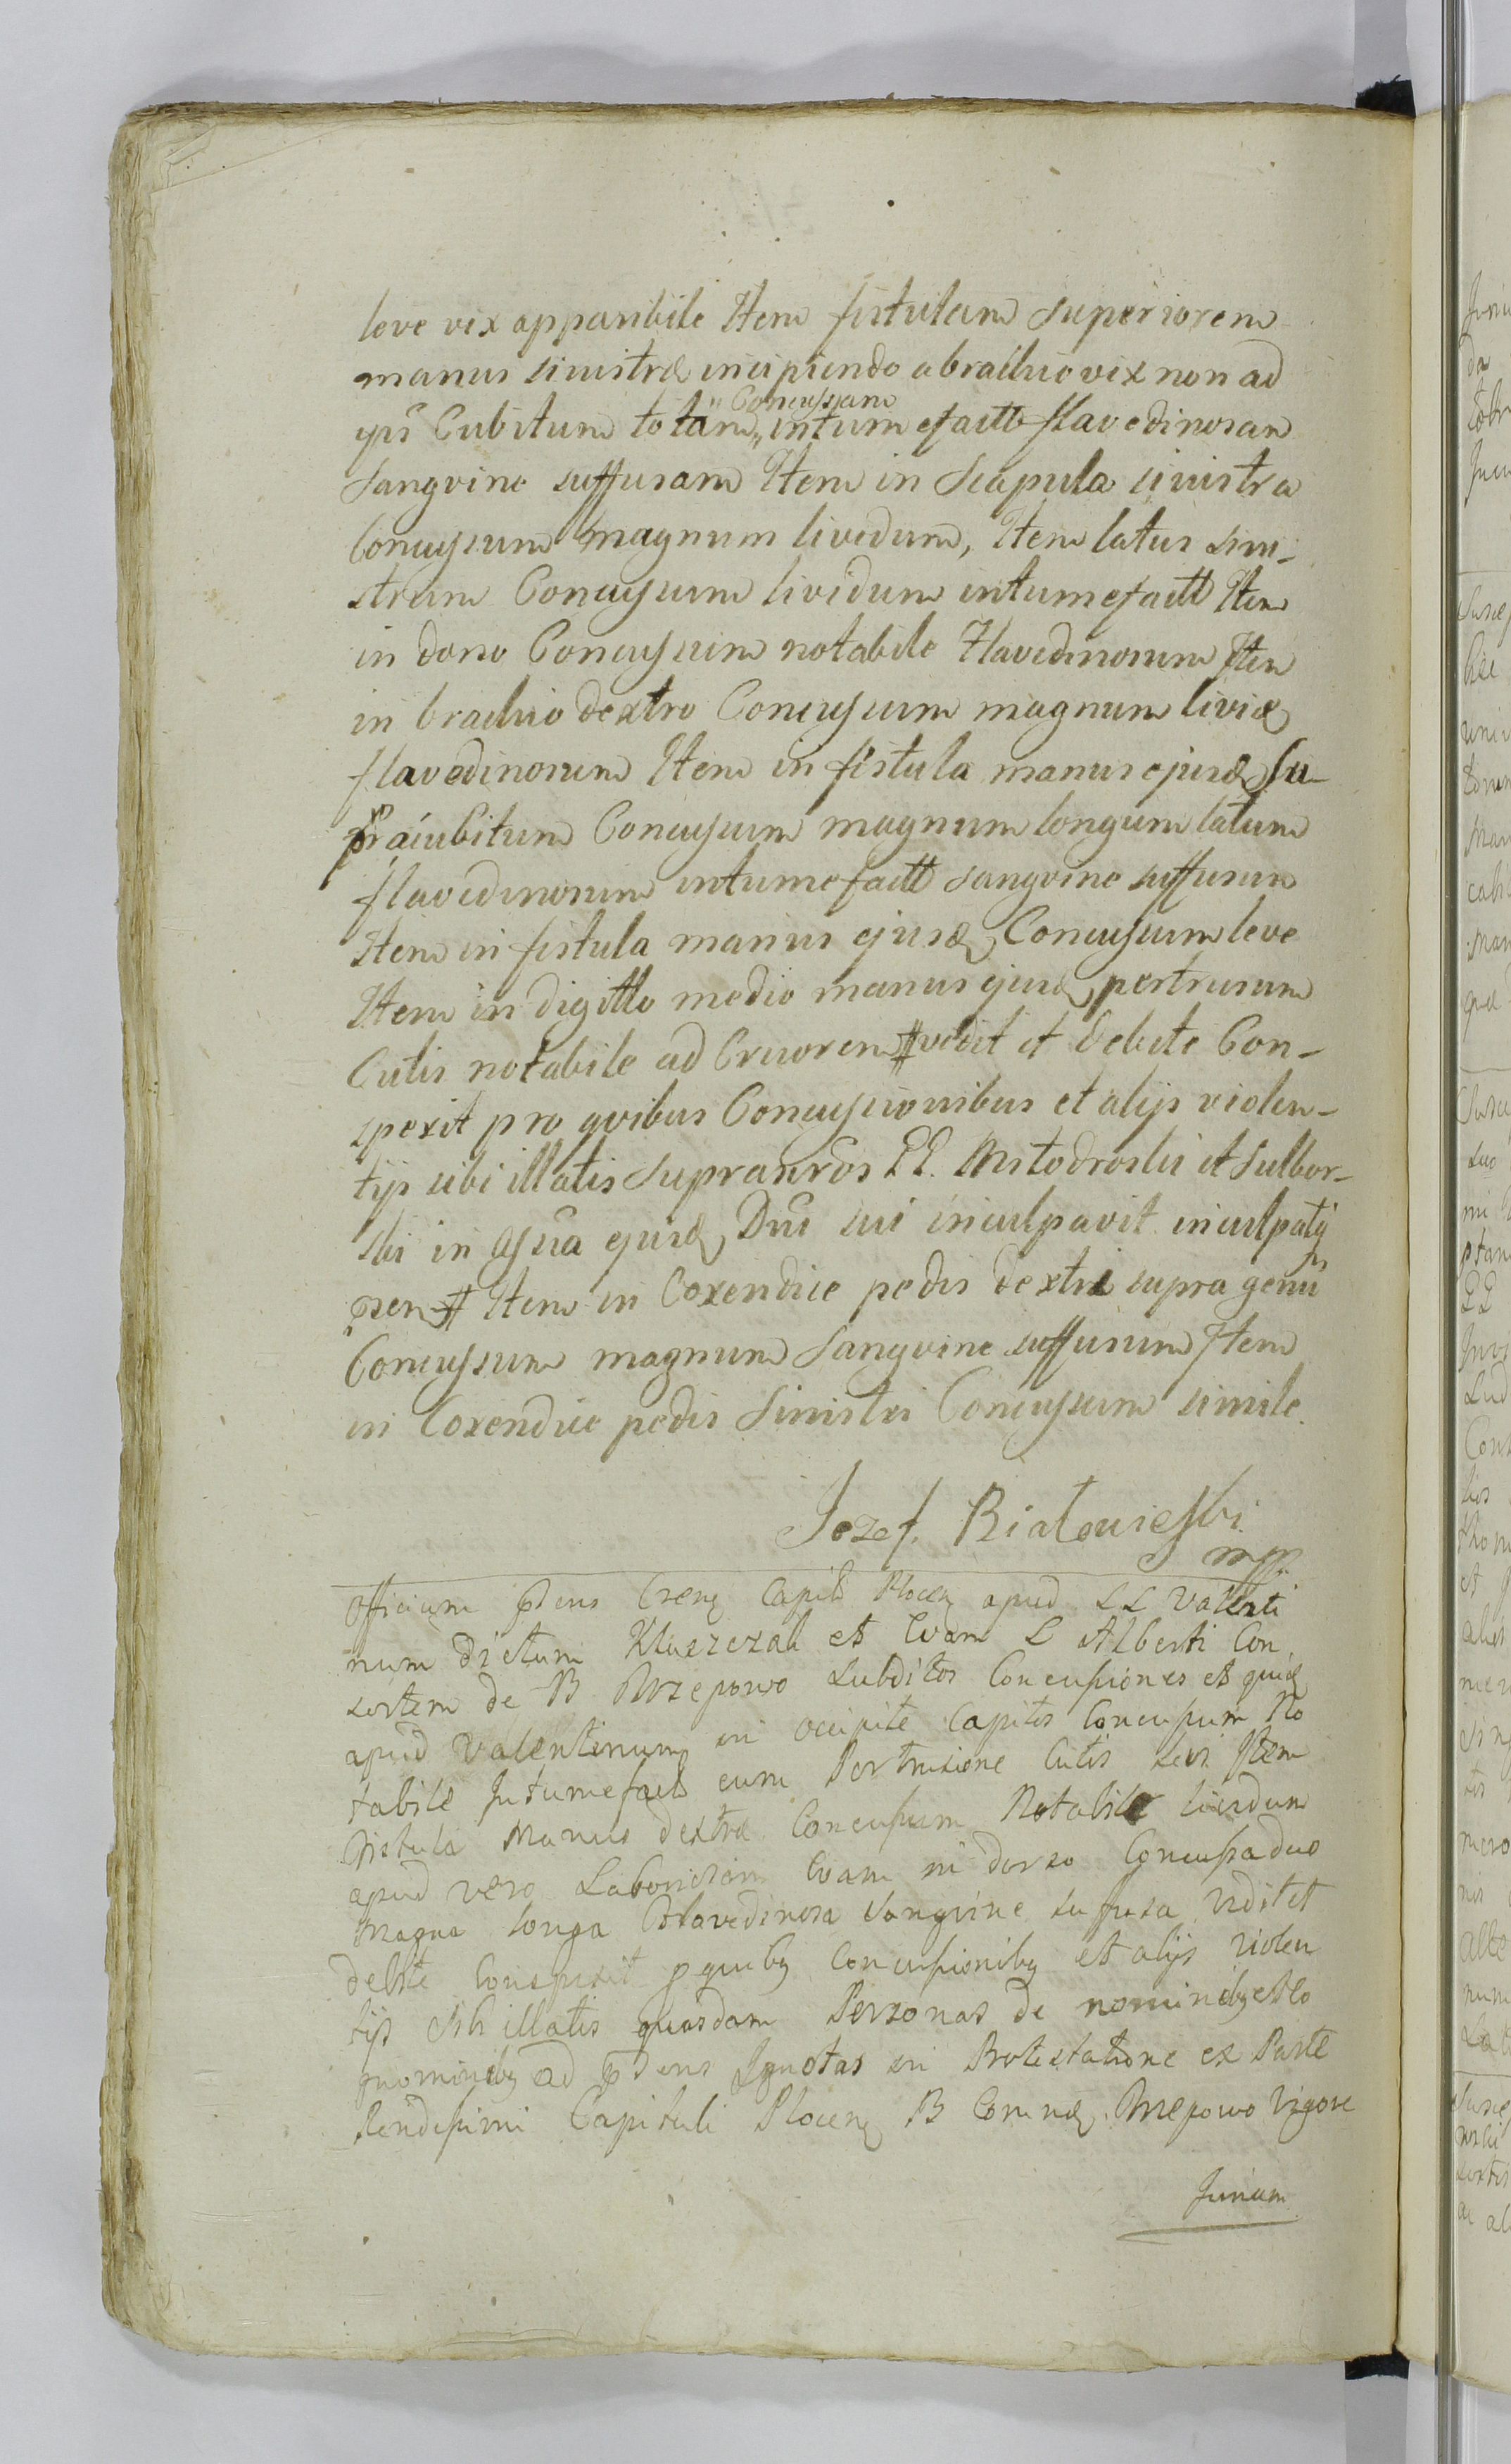 leve vix apparibile Item fistulam superiorem
manus sinistræ incipiendo a brachio vix non ad
Concussam
ips Cubitum totam intumefactt flavedinosam
Sangvine suffusam Item in Scapula sinistra
Concussum magnum lividum, Item latus sini-
strum Concussum lividum intumefactt Item
in dorso Concussum notabile Flavedinosum Item
in brachio dextro Concussum magnum livid
flavedinosum Item in fistula manus ejusd su-
pra cubitum Concussum magnum longum latum
flavedinosum intumefactt sangvine suffusum
Item in fistula manus ejusd Concussum leve
Item in digitto medio manus ejusd pertrusum
Cutis notabile ad Cruorem # vidit et debite Con-
spexit pro qvibus Concussionibus et alijs violen-
tijs sibi illatis supranros LL. et Sulbor-
ski in asua ejusd Dni sui inculpavit inculpatq
psen # Item in Coxendice pedis dextri supra genu
Concussum magnum Sangvine suffusum Item
in Coxendice pedis Sinistri Concussum simile.
Jozef. Białowieski
mpp
Officium pdens Crens apud LL Valenti
num dictum Kluszczak et Evam L Alberti Con
sortem de B subditos Concussiones et quid
apud Valentinum in occipite Capitis Concussum No
tabile Intumefact cum Pertrusione Cutis levi Item
fistula Manus dextræ Concussum Notabile lividum
apud vero Laboriosam Evam in dorso Concussa duo
magna longa flavedinosa Sangvine sufusa vidit et
debite Conspexit p quibq Concussionibq et alijs violen
tijs sibi illatis quasdam Personas de nominibq et co
gnominibq ad pdens Ignotas in Protestatione ex Parte
Rendissimi Capituli Plocens B vigore
Jurium